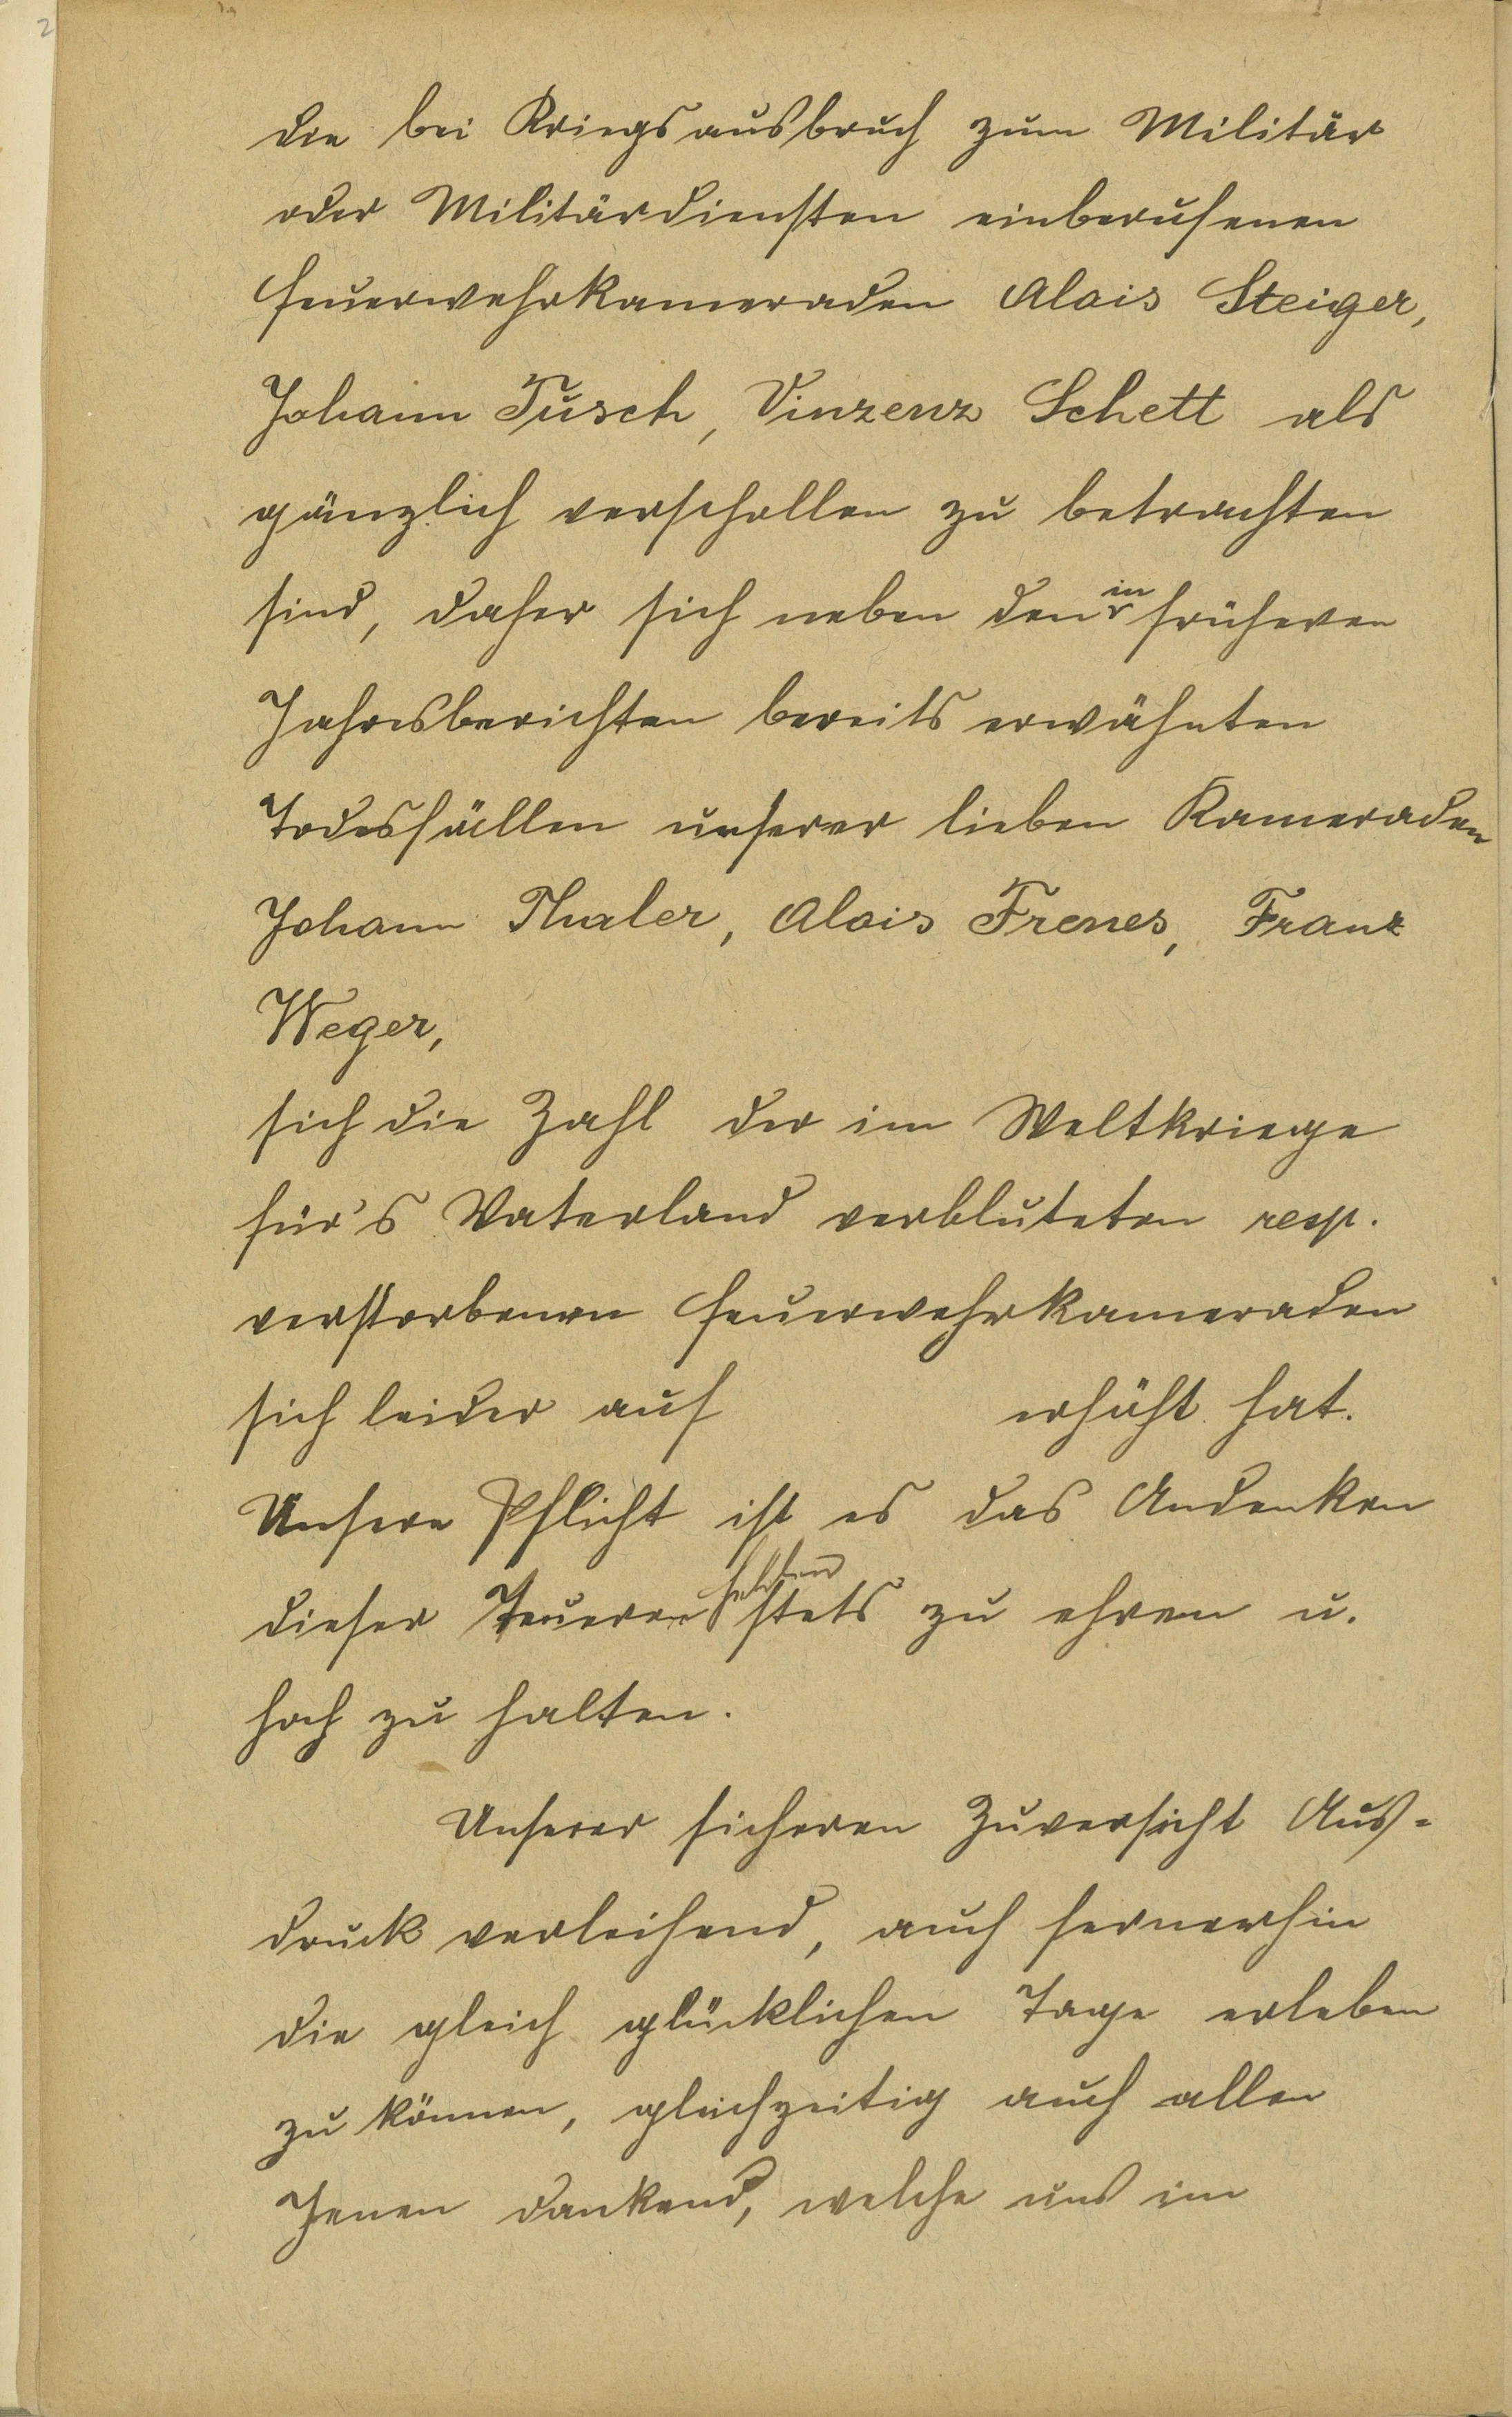 2
die bei Kriegsausbruch zum Militär
oder Militärdiensten einberufenen
Feuerwehrkameraden Alois Steiger,
Johann Tusch, Vinzenz Schett als
gänzlich verschollen zu betrachten
sind, daher sich neben den in früheren
Jahresberichten bereits erwähnten
Todesfällen unserer lieben Kameraden
Johann Thaler, Alois Frenes, Franz
Weger,
sich die Zahl der im Weltkriege
für's Vaterland verbluteten resp.
verstorbenen Feuerwehrkameraden
sich leider auf erhöht hat.
Unsere Pflicht ist es das Andenken
dieser Teueren Helden stets zu ehren u.
hoch zu halten.
Unserer sicheren Zuversicht Aus-
druck verleihend, auch fernerhin
die gleich glücklichen Tage erleben
zu können, gleichzeitig auch allen
Jenen dankend, welche uns im